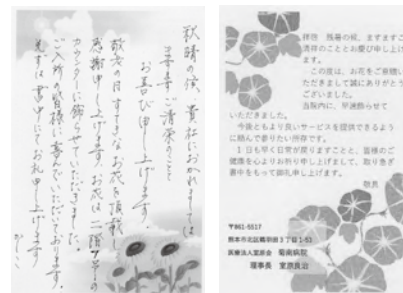 秋晴の候、貴社におかれましては
益々ご清栄のことと
お喜び申し上げます。
敬老の日すてきなお花を頂戴し
感謝申し上げます。お花は二階
カウンターに飾らせていただきました。
ご入所の皆様に喜んでいただいております。
まずは書中にてお礼申し上げます。
かしこ
拝啓 残暑の候、ますますご
清祥のこととお慶び申し上げ
ます。
この度は、お花をご恵贈い
ただきまして誠にありがとう
ございました。
当院内に、早速飾らせて
いただきました。
今後ともより良いサービスを提供できるよう
に励んで参りたい所存です。
1日も早く日常が戻りますことと、皆様のご
健康を心よりお祈り申し上げまして、取り急ぎ
書中をもって御礼申し上げます。
敬具
〒861-5517
熊本市北区鶴羽田3丁目1-53
医療法人室原会 菊南病院
理事長 室原良治